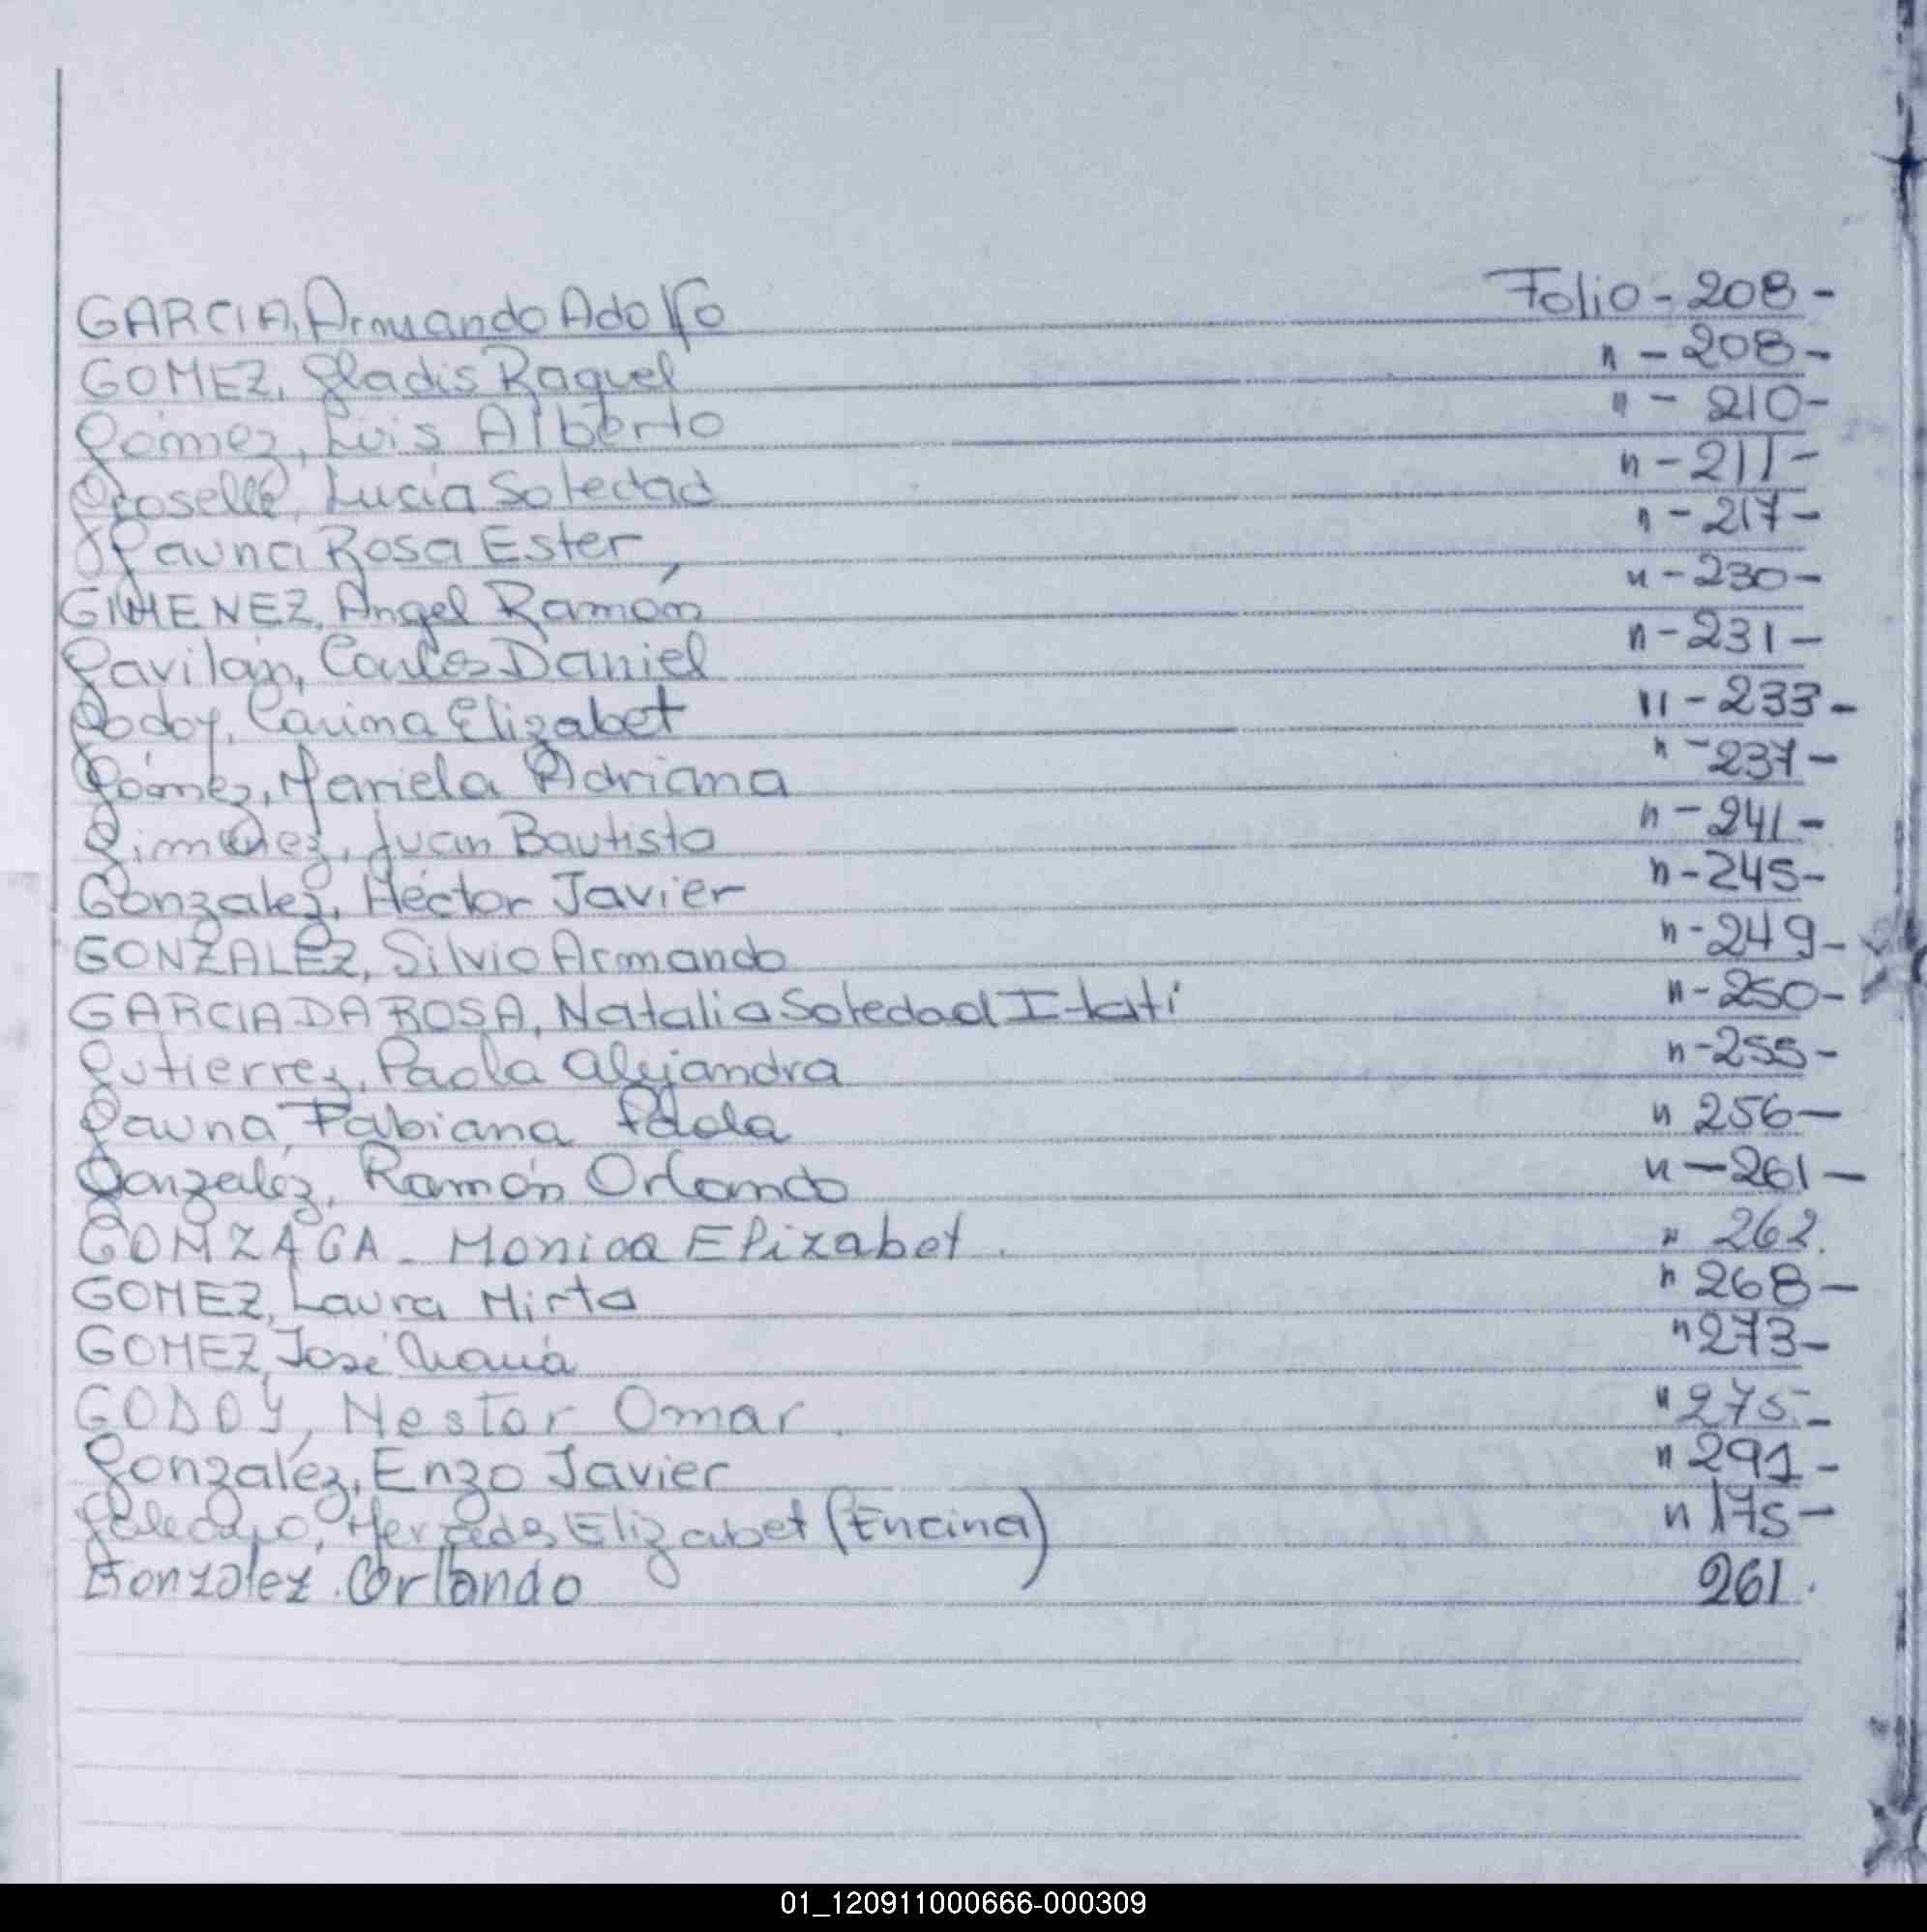 GARCIA, Armando Adolfo Folio - 208 -
GOMEZ, Gladis Raquel " - 208 -
Gómez, Luis Alberto " - 210 -
Groselle, Lucía Soledad " - 211 -
Gauna Rosa Ester " - 217 -
GIMENEZ, Angel Ramón " - 230 -
Gavilán, Carlos Daniel " - 231 -
Godoy, Carina Elizabet " - 233 -
Gómez, Mariela Adriana " - 237 -
Gimenez, Juan Bautista " - 241 -
Gonzalez, Héctor Javier " - 245 -
GONZALEZ, Silvio Armando " - 249 -
GARCIA DA ROSA, Natalia Soledad Itatí " - 250 -
Gutierrez, Paola Alejandra " - 255 -
Gauna, Fabiana " 256 -
Gonzalez, Ramón Orlando " - 261 -
GOMZAGA - Monica Elizabet . " 262.
GOMEZ, Laura Mirta " 268 -
GOMEZ, José María " 273 -
GODOY, Nestor Omar . " 275 -
Gonzalez, Enzo Javier " 291 -
Mercedes Elizabet (Encina) " 175 -
Gonzalez . Orlando 261.
01_120911000666-000309